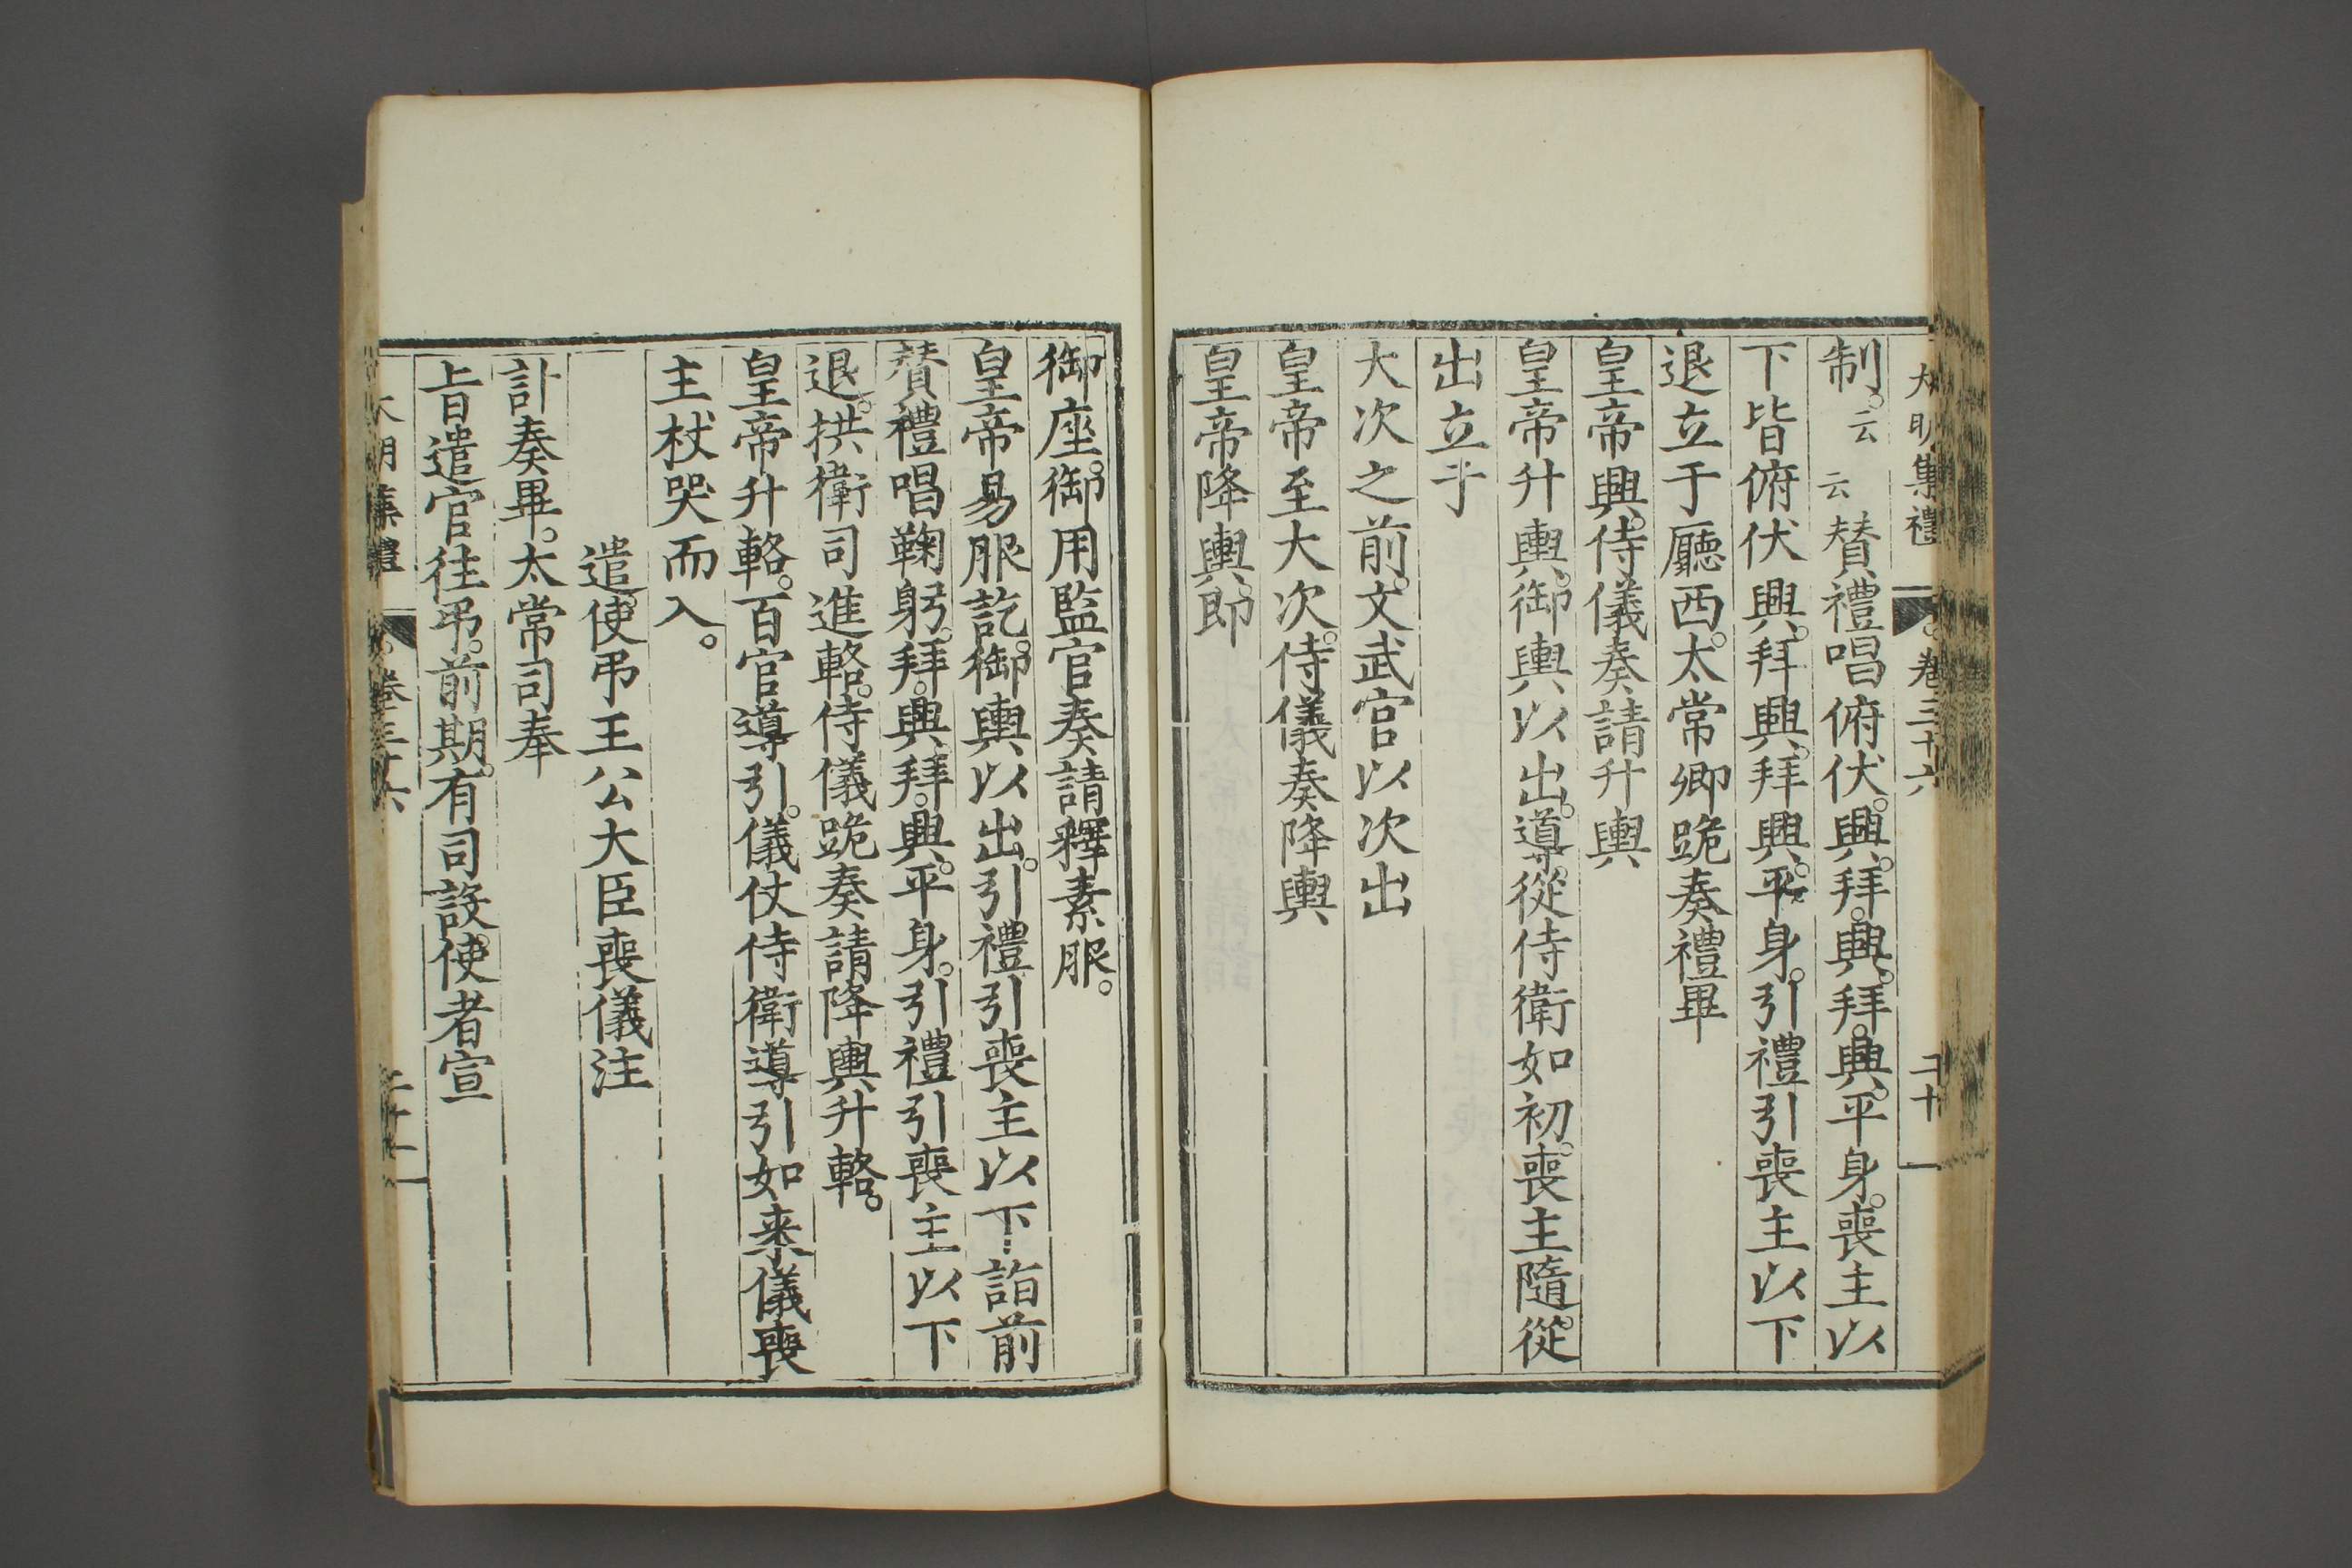 大明集禮 卷三十六 二十
制。云云贊禮唱俯伏。興。拜。興。拜。興。平身。喪主以
下皆俯伏興。拜興。拜興。平身。引禮引喪主以下
退立于廳西。太常卿跪奏禮畢
皇帝興。侍儀奏請升輿
皇帝升輿。御輿以出。導。從侍衛如初。喪主隨從
出立于
大次之前。文武官以次出
皇帝至大次。侍儀奏降輿
皇帝降輿。即
御座。御用監官奏請釋素服。
皇帝易服訖。御輿以出。引禮引喪主以下詣前
贊禮唱鞠躬。拜。興。拜。興。平身。引禮引喪主以下
退。拱衛司進輅。侍儀跪奏請降輿升輅。
皇帝升輅。百官導引。儀仗侍衛導引如来儀喪
主杖哭而入。
遣使弔王公大臣喪儀注
訃奏畢。太常司奉
旨遣官往弔。前期。有司設使者宣
大明集禮 卷三十六 二十一